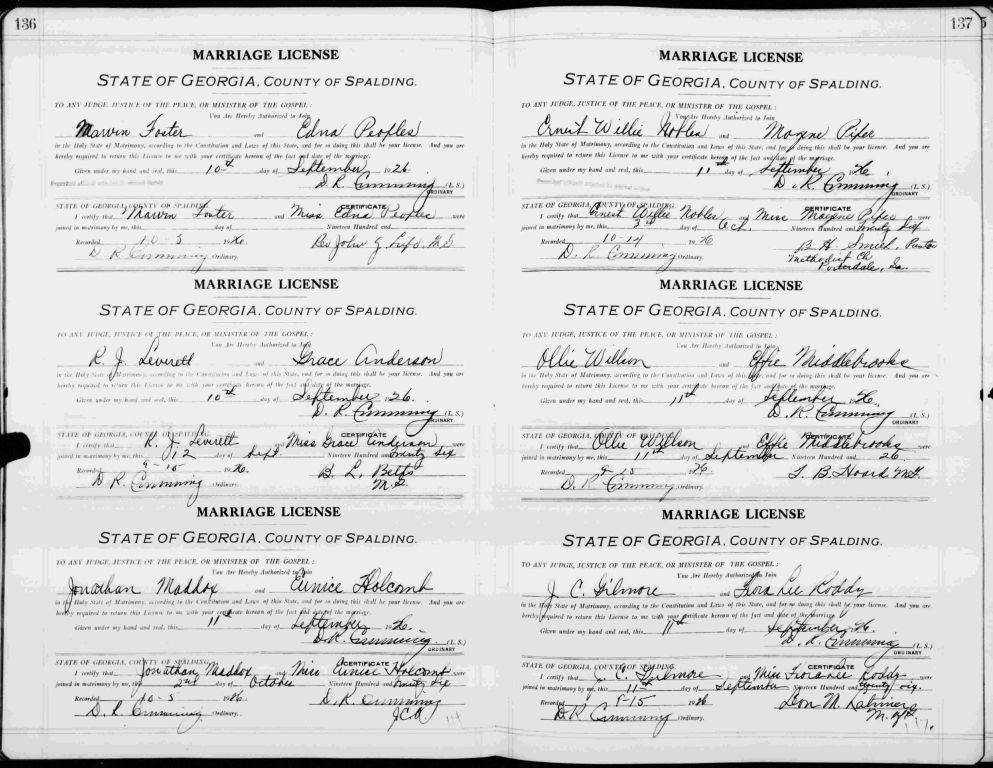 136
MARRIAGE LICENSE
STATE OF GEORGIA, COUNTY OF SPALDING.
TO ANY JUDGE, JUSTICE OF THE PEACE, OR MINISTER OF THE GOSPEL:
You Are Hereby Authorized to Join
Marvin Foster and Edna Peoples
in the Holy State of Matrimony, according to the Constitution and Laws of this State, and for so doing this shall be your license. And you are
hereby required to return this License to me with your certificate hereon of the fact and date of the marriage.
Given under my hand and seal, this 10th day of September 1926.
D. R. Cumming (L. S.)
ORDINARY
STATE OF GEORGIA, COUNTY OF SPALDING. CERTIFICATE
I certify that Marvin Foster and Miss Edna Peoples were
joined in matrimony by me, this day of Nineteen Hundred and
Recorded 10-5 1926. Rev John
D R Cumming Ordinary.
MARRIAGE LICENSE
STATE OF GEORGIA, COUNTY OF SPALDING.
TO ANY JUDGE, JUSTICE OF THE PEACE, OR MINISTER OF THE GOSPEL:
You Are Hereby Authorized to Join
R. J. Leverett and Grace Anderson
in the Holy State of Matrimony, according to the Constitution and Laws of this State, and for so doing this shall be your license. And you are
hereby required to return this License to me with your certificate hereon of the fact and date of the marriage.
Given under my hand and seal, this 10th day of September 1926.
D. R. Cumming (L. S.)
ORDINARY
STATE OF GEORGIA, COUNTY OF SPALDING. CERTIFICATE
I certify that R. J. Leverett and Miss Grace Anderson were
joined in matrimony by me, this 12 day of Sept Nineteen Hundred and twenty six
Recorded 9-15 1926. B. L. Betts
D R Cumming Ordinary. M. G.
MARRIAGE LICENSE
STATE OF GEORGIA, COUNTY OF SPALDING.
TO ANY JUDGE, JUSTICE OF THE PEACE, OR MINISTER OF THE GOSPEL:
You Are Hereby Authorized to Join
Jonathan Maddox and Eunice Holcomb
in the Holy State of Matrimony, according to the Constitution and Laws of this State, and for so doing this shall be your license. And you are
hereby required to return this License to me with your certificate hereon of the fact and date of the marriage.
Given under my hand and seal, this 11th day of September 1926.
D. R. Cumming (L. S.)
ORDINARY
STATE OF GEORGIA, COUNTY OF SPALDING. CERTIFICATE
I certify that Jonathan Maddox and Miss Eunice Holcomb were
joined in matrimony by me, this 2nd day of October Nineteen Hundred and twenty six
Recorded 10-5 1926 D. R. Cumming
D. R Cumming Ordinary.
137
MARRIAGE LICENSE
STATE OF GEORGIA, COUNTY OF SPALDING.
TO ANY JUDGE, JUSTICE OF THE PEACE, OR MINISTER OF THE GOSPEL:
You Are Hereby Authorized to Join
Ernest Willie Nobles and Mozene Piper
in the Holy State of Matrimony, according to the Constitution and Laws of this State, and for so doing this shall be your license. And you are
hereby required to return this License to me with your certificate hereon of the fact and date of the marriage.
Given under my hand and seal, this 11th day of September 1926.
D. R. Cumming (L. S.)
ORDINARY
STATE OF GEORGIA, COUNTY OF SPALDING. CERTIFICATE
I certify that Ernest Willie Nobles and Miss Mozene Piper were
joined in matrimony by me, this 3rd day of Oct. Nineteen Hundred and twenty six
Recorded 10-14 1926 B. H. Smith, Pastor
D. R Cumming Ordinary. Methodist Ch
Porterdale, Ga.
MARRIAGE LICENSE
STATE OF GEORGIA, COUNTY OF SPALDING.
TO ANY JUDGE, JUSTICE OF THE PEACE, OR MINISTER OF THE GOSPEL:
You Are Hereby Authorized to Join
Ollie Willson and Effie Middlebrooks
in the Holy State of Matrimony, according to the Constitution and Laws of this State, and for so doing this shall be your license. And you are
hereby required to return this License to me with your certificate hereon of the fact and date of the marriage.
Given under my hand and seal, this 11th day of September 1926.
D. R. Cumming (L. S.)
ORDINARY
STATE OF GEORGIA, COUNTY OF SPALDING. CERTIFICATE
I certify that Ollie Willson and Effie Middlebrooks were
joined in matrimony by me, this 11th day of September Nineteen Hundred and 26
Recorded 9-25 1926 T. B. Hoard M.G.
D. R Cumming Ordinary.
MARRIAGE LICENSE
STATE OF GEORGIA, COUNTY OF SPALDING.
TO ANY JUDGE, JUSTICE OF THE PEACE, OR MINISTER OF THE GOSPEL:
You Are Hereby Authorized to Join
J. C. Gilmore and Flora Lee Roddy
in the Holy State of Matrimony, according to the Constitution and Laws of this State, and for so doing this shall be your license. And you are
hereby required to return this License to me with your certificate hereon of the fact and date of the marriage.
Given under my hand and seal, this 11th day of September 1926.
D. R. Cumming (L. S.)
ORDINARY
STATE OF GEORGIA, COUNTY OF SPALDING. CERTIFICATE
I certify that J. C. Gilmore and Miss Flora Lee Roddy were
joined in matrimony by me, this 11th day of September Nineteen Hundred and twenty six.
Recorded 9-15 1926 Leon M. Latimer
D R Cumming Ordinary. M. of G.